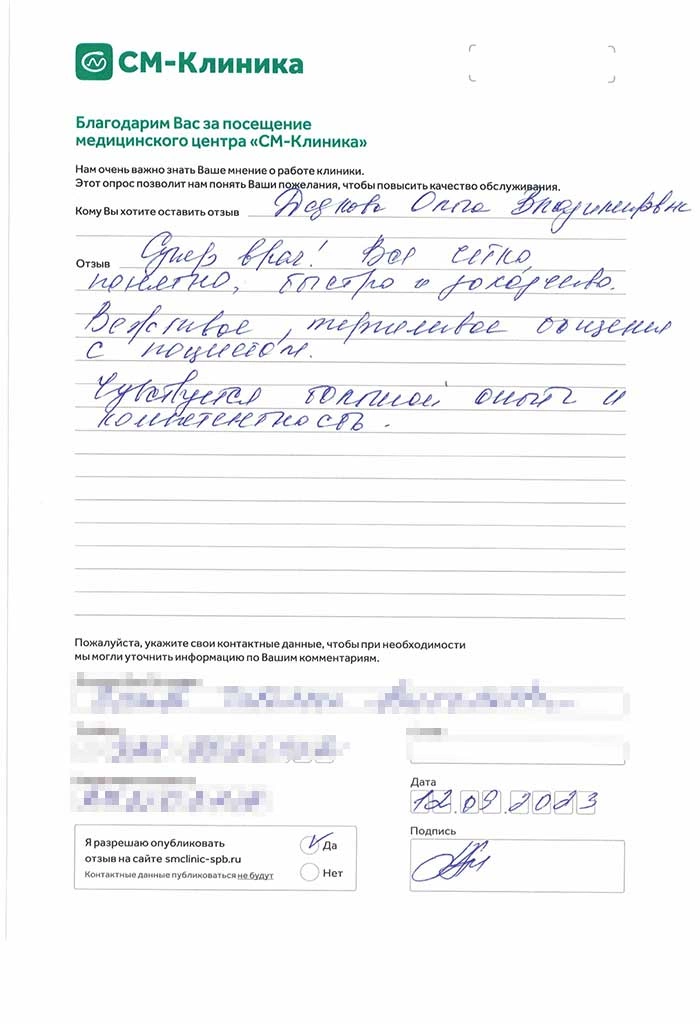 СМ-Клиника
Благодарим Вас за посещение
медицинского центра «СМ-Клиника»
Нам очень важно знать Ваше мнение о работе клиники.
Этот опрос позволит нам понять Ваши пожелания, чтобы повысить качество обслуживания.
Кому Вы хотите оставить отзыв Ольга Владимировна
Отзыв Супер врач! Все четко,
понятно, быстро и доходчиво.
Вежливое, терпеливое общения
с пациентом.
Чувствуется большой опыт и
компетентность.
Пожалуйста, укажите свои контактные данные, чтобы при необходимости
мы могли уточнить информацию по Вашим комментариям.
Дата
12.09.2023
Я разрешаю опубликовать
отзыв на сайте smclinic-spb.ru
Контактные данные публиковаться не будут
Да
Нет
Подпись